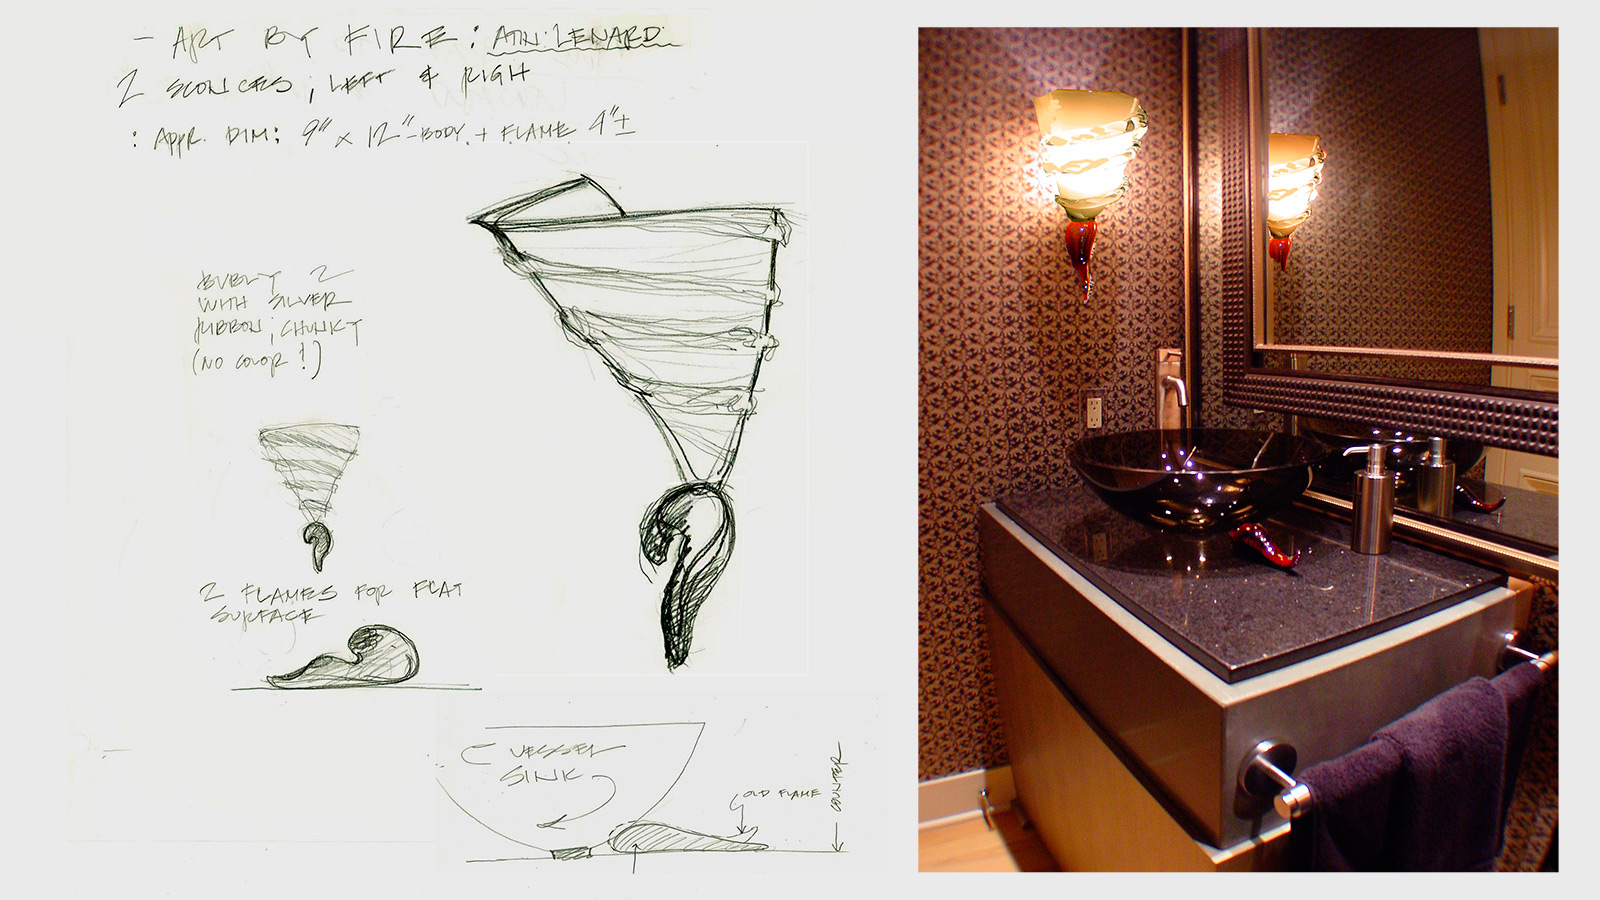 - ART BY FIRE: ATN: LENARD.
2 SCONCES; LEFT & RIGH
: APPR. DIM: 9" x 12"-BODY. + FLAME 4"±
BUBLY 2
WITH SILVER
RIBBON; CHUNKY
(NO COLOR!)
2 FLAMES FOR FLAT
SURFACE
VESSEL
SINK
OLD FLAME
COUNTER